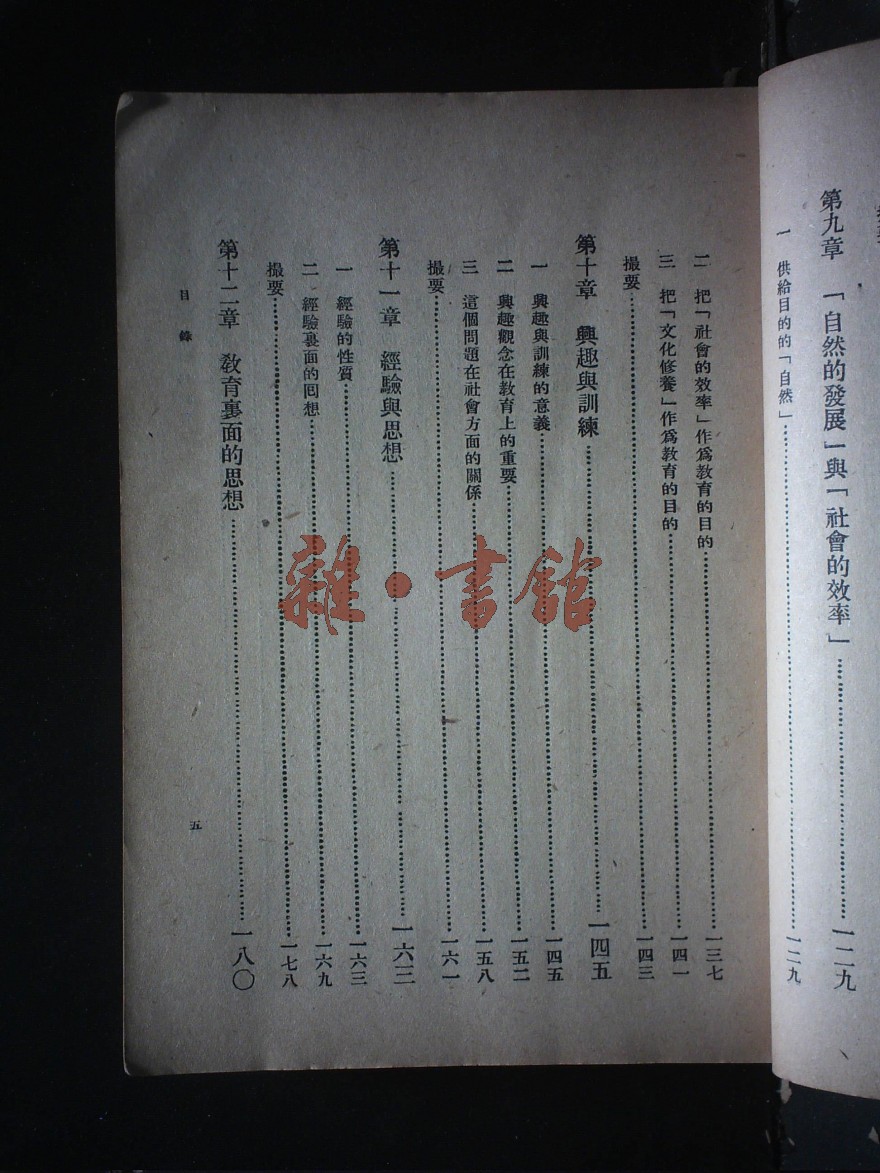 第九章　「自然的發展」與「社會的效率」……一二九
一　供給目的的「自然」……一二九
二　把「社會的效率」作爲教育的目的……一三七
三　把「文化修養」作爲教育的目的……一四一
撮要……一四三
第十章　興趣與訓練……一四五
一　興趣與訓練的意義……一四五
二　興趣觀念在教育上的重要……一五二
三　這個問題在社會方面的關係……一五八
撮要……一六一
第十一章　經驗與思想……一六三
一　經驗的性質……一六三
二　經驗裏面的囘想……一六九
撮要……一七八
第十二章　敎育裏面的思想……一八〇
目錄
五
雜·書館